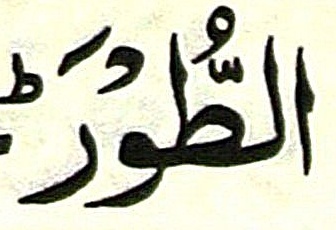 الطُّوْرَؕ